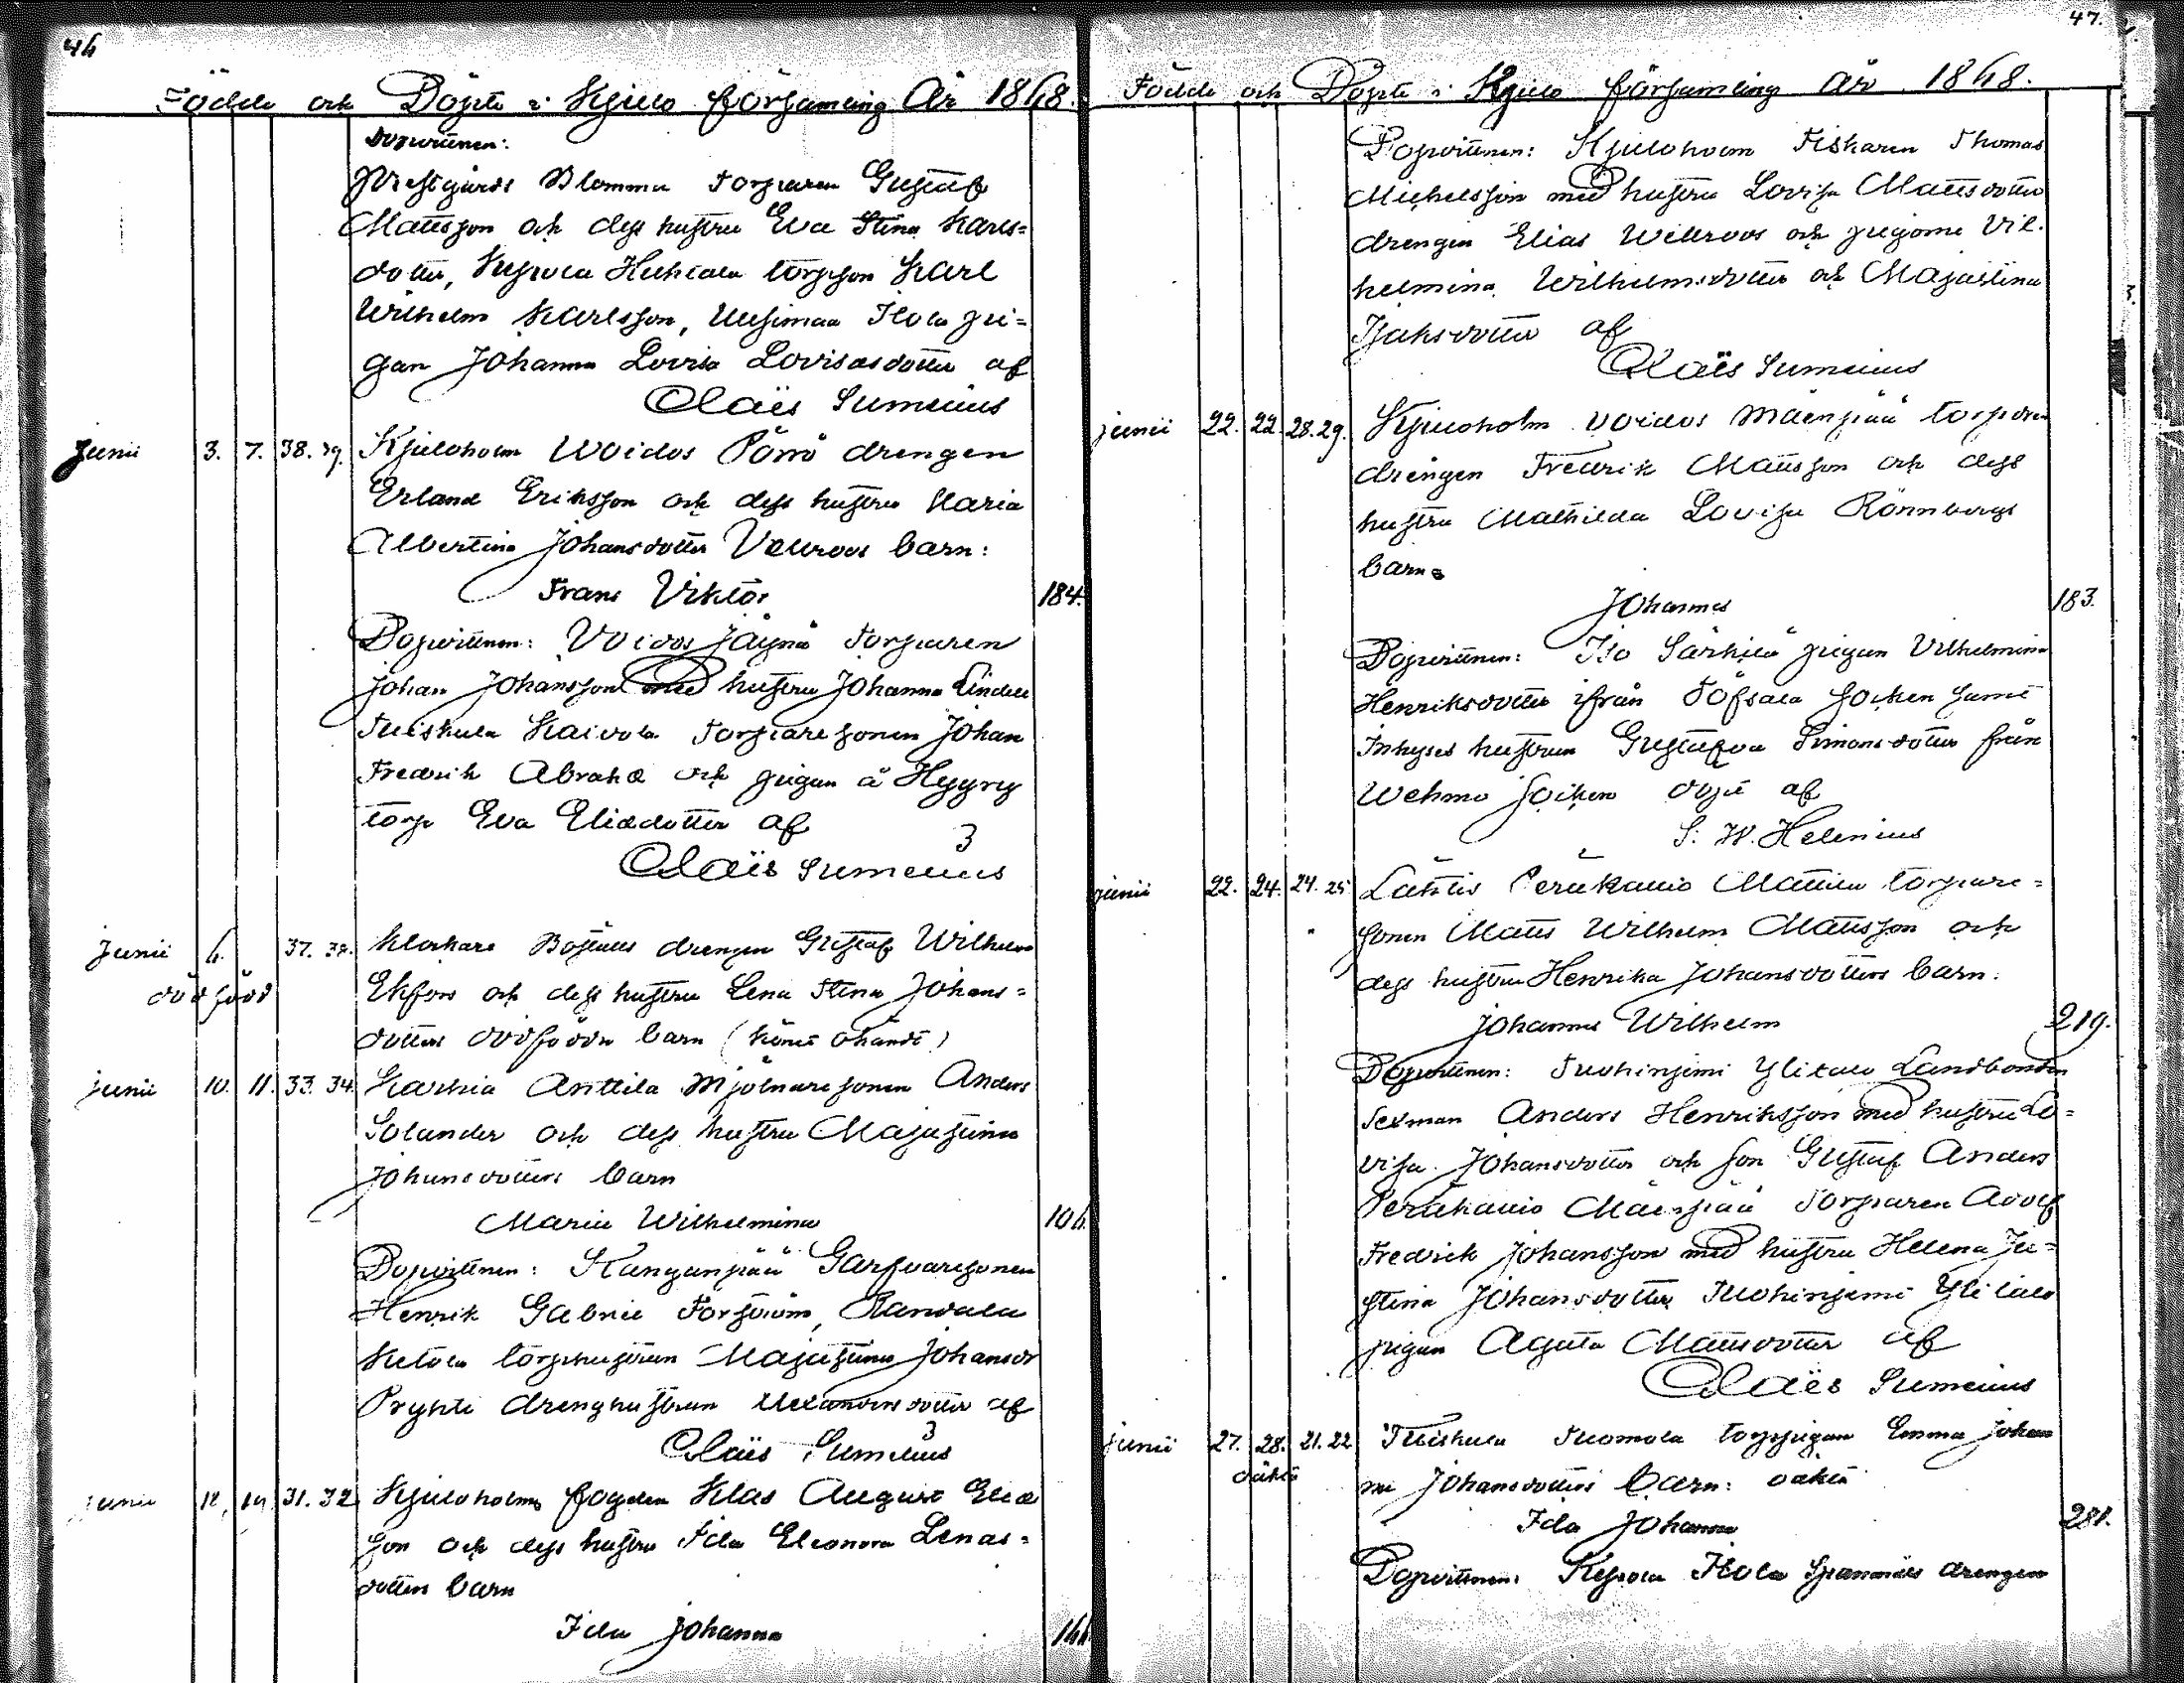 46
Födde och Döpte i Kjulo församling År 1868.
Dopvittnen:
Prestgårds Blomma Torparen Gustaf
Mattsson och dess hustru Eva Stina Karls=
dotter, Torpson Karl
Wilhelm Karlsson, Uusimaa Ilola pi=
gan Johanna Lovisa Lovisasdotter af
Claës Sumelius
Junii 3. 7. 38. 39. Kjuloholm Woidos Pörrö drengen
Erland Eriksson och dess hustru Maria
Albertina Johansdotter Vellroos barn:
Frans Viktor 184.
Dopvittnen: Voidos Jäynä Torparen
Johan Johansson med hustru Johanna Lindell
Tuiskula Kaivola Torparesonen Johan
Fredrik Abrahā och pigan å Hyyry
torp Eva Eliædotter af
Claës Sumelius
Junii 6. 37. 38. Klockars Boställes drengen Gustaf Wilhelm
dödfödd Ekfors och dess hustru Lena Stina Johans=
dotters dödfödda barn (könet okändt)
junii 10. 11. 33. 34. Karhia Anttila Mjölnaresonen Anders
Solander och dess hustru Majastina
Johansdotters barn
Maria Wilhelmina 106.
Dopvittnen: Kanganpää Garfvaresonen
Henrik Gabriel Forsström, Randala
Ketola torphustrun Majastina Johansdr
Pryhti drenghustrun Alexandersdotter af
Claës Sumelius
Junii 12. 14. 31. 32. Kjuloholms fogden Klas August Eliæ
son och dess hustru Ida Eleonora Lenas=
dotters barn
Ida Johanna 166.
47.
Födde och Döpte i Kjulo församling År 1868.
Dopvittnen: Kjuloholm Fiskaren Thomas
Michelsson med hustru Lovisa Mattsdotter
drengen Elias Wellroos och pigorne Vil.
helmina Wilhelmsdotter och Majastina
Isaksdotter af
Claës Sumelius
junii 22. 22. 28. 29. Kjuloholm Voidos Mäenpää torpare
drengen Fredrik Mattsson och dess
hustru Mathilda Lovisa Rönnbergs
barn
Johannes 183.
Dopvittnen: Iso Särkilä pigan Vilhelmina
Henriksdotter ifrån Töfsala Socken samt
Inhyses hustrun Gustafva Simonsdotter från
Wehmo Socken döpt af
S. W. Helenius
junii 22. 24. 24. 25. Lähtis Peräkallio Mattila torpare=
sonen Matts Wilhelm Mattsson och
dess hustru Henrika Johansdotters barn.
Johannes Wilhelm 219.
Dopvittnen: Tuohiniemi Ylitalo Landbonden
Sexman Anders Henriksson med hustru Lo=
visa Johansdotter och son Gustaf Anders
Peräkallio Mäenpää Torparen Adolf
Fredrick Johansson med hustru Helena Ju=
stina Johansdotter Tuohiniemi Ylitalo
pigan Agata Mattsdotter af
Claës Sumelius
junii 27. 28. 21. 22. Tuiskula Tuomola torppigan Emma Johan
oäkta na Johansdotters barn: oäkta
Ida Johanna 281.
Dopvittnen: Kepola Ilola Spannmåls drengen